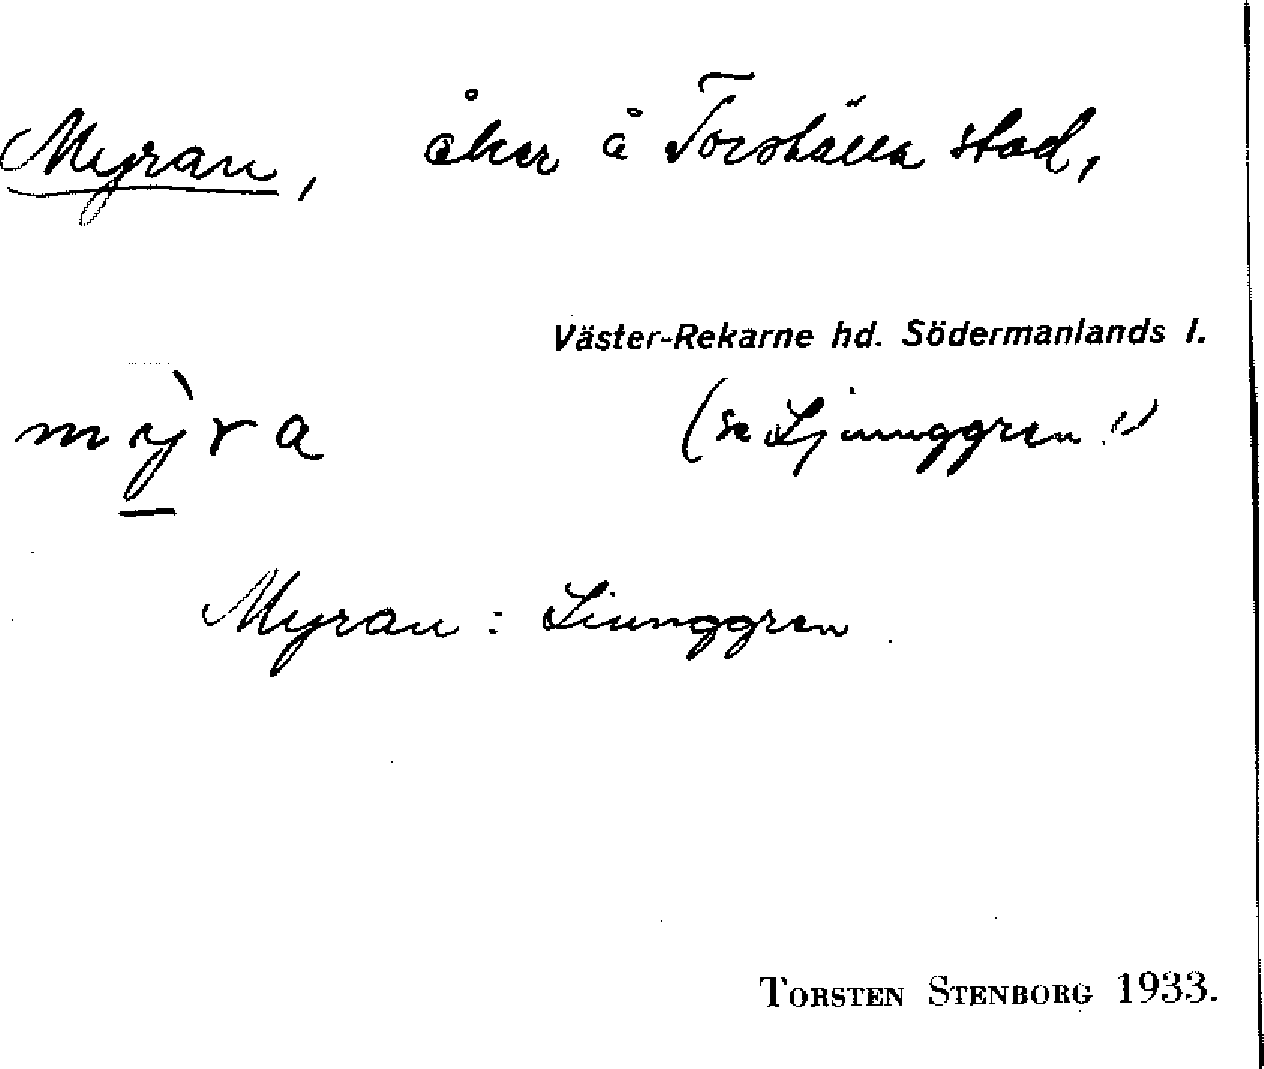 Myran, åker å Torshälla stad,
Väster-Rekarne hd. Södermanlands l.
mỳra (se Ljunggren!)
Myran: Liunggren.
TORSTEN STENBORG 1933.